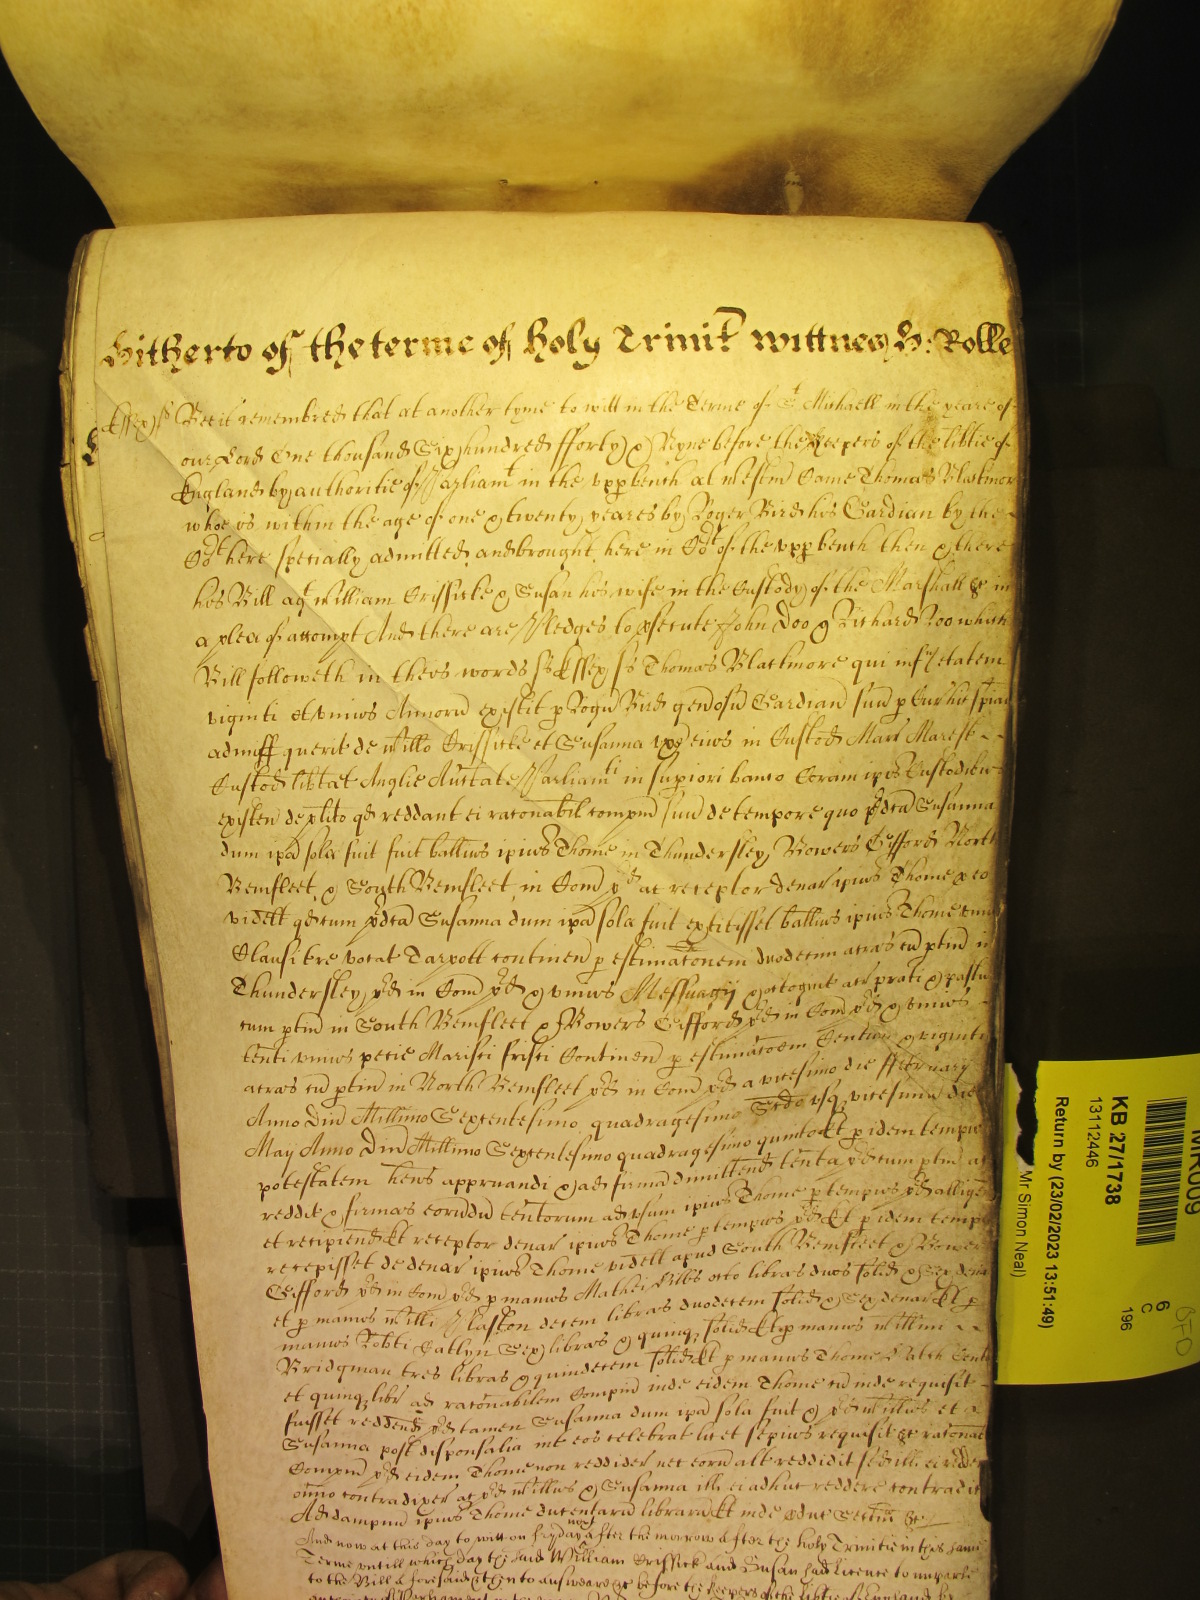 Hitherto of the terme of holy Trinit wittnes H: Rolle
Essex ss Bee it remembred that at another tyme to witt in the Terme of St Michaell in the yeare of
our Lord One thousand Six hundred fforty & Nyne before the Keepers of the libtie of
England by authoritie of Parliamt in the vpp bench at Westm Came Thomas Blackmor
whoe is within the age of one & twenty yeares by Roger Bird his Gardian by the
Cort here specially admitted and brought here in Cort of the vpp bench then & there
his Bill agt William Crissicke & Susan his wife in the Custody of the Marshall &c in
a plea of accompt And there are Pledges to psecute John Doo & Richard Roo which
Bill followeth in theis words ss Essex ss Thomas Blackmore qui infr etatem
viginti et vnius Annoru existit p Rogu Bird gendsu Gardian suu p Cur hic spial
admiss querit de Willo Crissicke et Susanna vx eius in Custod Marr Maresc
Custod libtat Anglie Auctate Parliamti in supiori banco Coram ipis Custodibus
existen de plito qd reddant ei raconabil compm suu de tempore quo pdca Susanna
dum ipa sola fuit fuit ballius ipius Thome in Thundersley Bowers Gifford North
Bemfleet & South Bemfleet in Com pd ac receptor denar ipius Thome & eo
videlt qd cum pdca Susanna dum ipa sola fuit extitisset ballius ipius Thome vnius
Clausi tre vocat Tarpott continen p estimaconem duodecim acras cu ptin in
Thundersley pd in Com pd & vnius Messuagij & octogint acr prati & pastu
cum ptin in South Bemfleet & Bowers Gifford pd in Com pd & vnius
tenti vnius pecie Marisci frisci Continen p estimacoem Centum & viginti
acras cu ptin in North Bemfleet pd in Com pd a vicesimo die ffebruary
Anno Dni Millimo Sexcentesimo quadragesimo Scdo vsq vicesimu diem
May Anno Dni Millimo Sexcentesimo quadragesimo quinto Et p idem tempus
potestatem hens appruandi & ad firmam dimittend tenta pd cum ptin ac
reddit & firmas eorundm tentorum ad vsum ipius Thome p tempus pd
et recipiend Et receptor denar ipius Thome p tempus pd Et p idem tempus
recepisset de denar ipius Thome videlt apud South Bemfleet & Bowers
Gifford pd in Com pd p manus Mathei octo libras duos solid & sex denar
et p manus Willi Plaston decem libras duodecem solid & sex denar Et p
manus Robti Catlyn Sex libras & quinq solid Et p manus Willmi
Bridgman tres libras & quindecem solid Et p manus Thome Cent
et quinq libr ad raconabilem Compm inde eidem Thome cu inde requisit
fuisset reddend pd tamen Susanna dum ipa sola fuit & pd Willus et
Susanna post disponsalia int eos celebrat licet sepius requisit &c raconal
Compm pd eidem Thome non reddider nec eoru alt reddidit sed ill ei redder
omnio contradixer ac pd Willus & Susanna ill ei adhuc reddere contradic
Ad dampm ipius Thome ducentaru librar Et inde pduc Sectm &c
And now at this day to witt on fryday next after the morrow after the holy Trinitie in this same
Terme vntill which day the said William Crissick and Susan had licence to imparle
to the Bill aforesaid & then to answeare &c before the keepers of the libtie of England by
KB 27/1738
13112446
Return by (23/02/2023 13:51:49)
Mr Simon Neal)
6
C
196